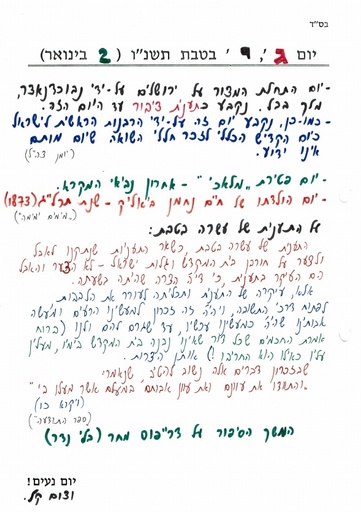 בס"ד
יום ג', י' בטבת תשנ"ו (2 בינואר)
-יום תחילת המצור על ירושלים על-ידי נבוכדנאצר,
מלך בבל. נקבע כתענית ציבור עד היום הזה.
-כמו-כן, נקבע יום זה על-ידי הרבנות הראשית לישראל
כיום הקדיש הכללי לזכר חללי השואה שיום מותם
אינו ידוע.
(יומן צה"ל)
-יום פטירת "מלאכי" - אחרון נביאי המקרא.
-יום הולדתו של ח"נ נחמן ביאליק - שנת תרל"ג (1873)
על התענית של עשרה בטבת:
התענית של עשרה בטבת, כשאר התעניות שתיקנו לאבל
ולצער על חורבן בית המקדש וגלות ישראל - לא הצער והאבל
הם העיקר בתענית, כי די לה הצרה שהיתה בשעתה.
אלא, עיקרה של התענית ותכליתה לעורר את הלבבות
לפתוח דרכי התשובה, ויהיה זה זכרון למעשינו הרעים ומעשה
אבותינו שהיה כמעשינו עכשיו, עד שגרם להם ולנו
אמרת החכמים שכל דור שאינו נבנה בית המקדש בימיו, מעלין
עליו כאילו הוא החריבו!) אותן הצרות.
שבזכרון דברים אלה נשוב להטיב שנאמר:
"והתוודו את עוונם ואת עוון אבותם במעלם אשר מעלו בי"
(ויקרא כו)
(ספר התודעה)
המשך הסיפור על מחר (בלי נדר)
יום נעים!
וצום קל.